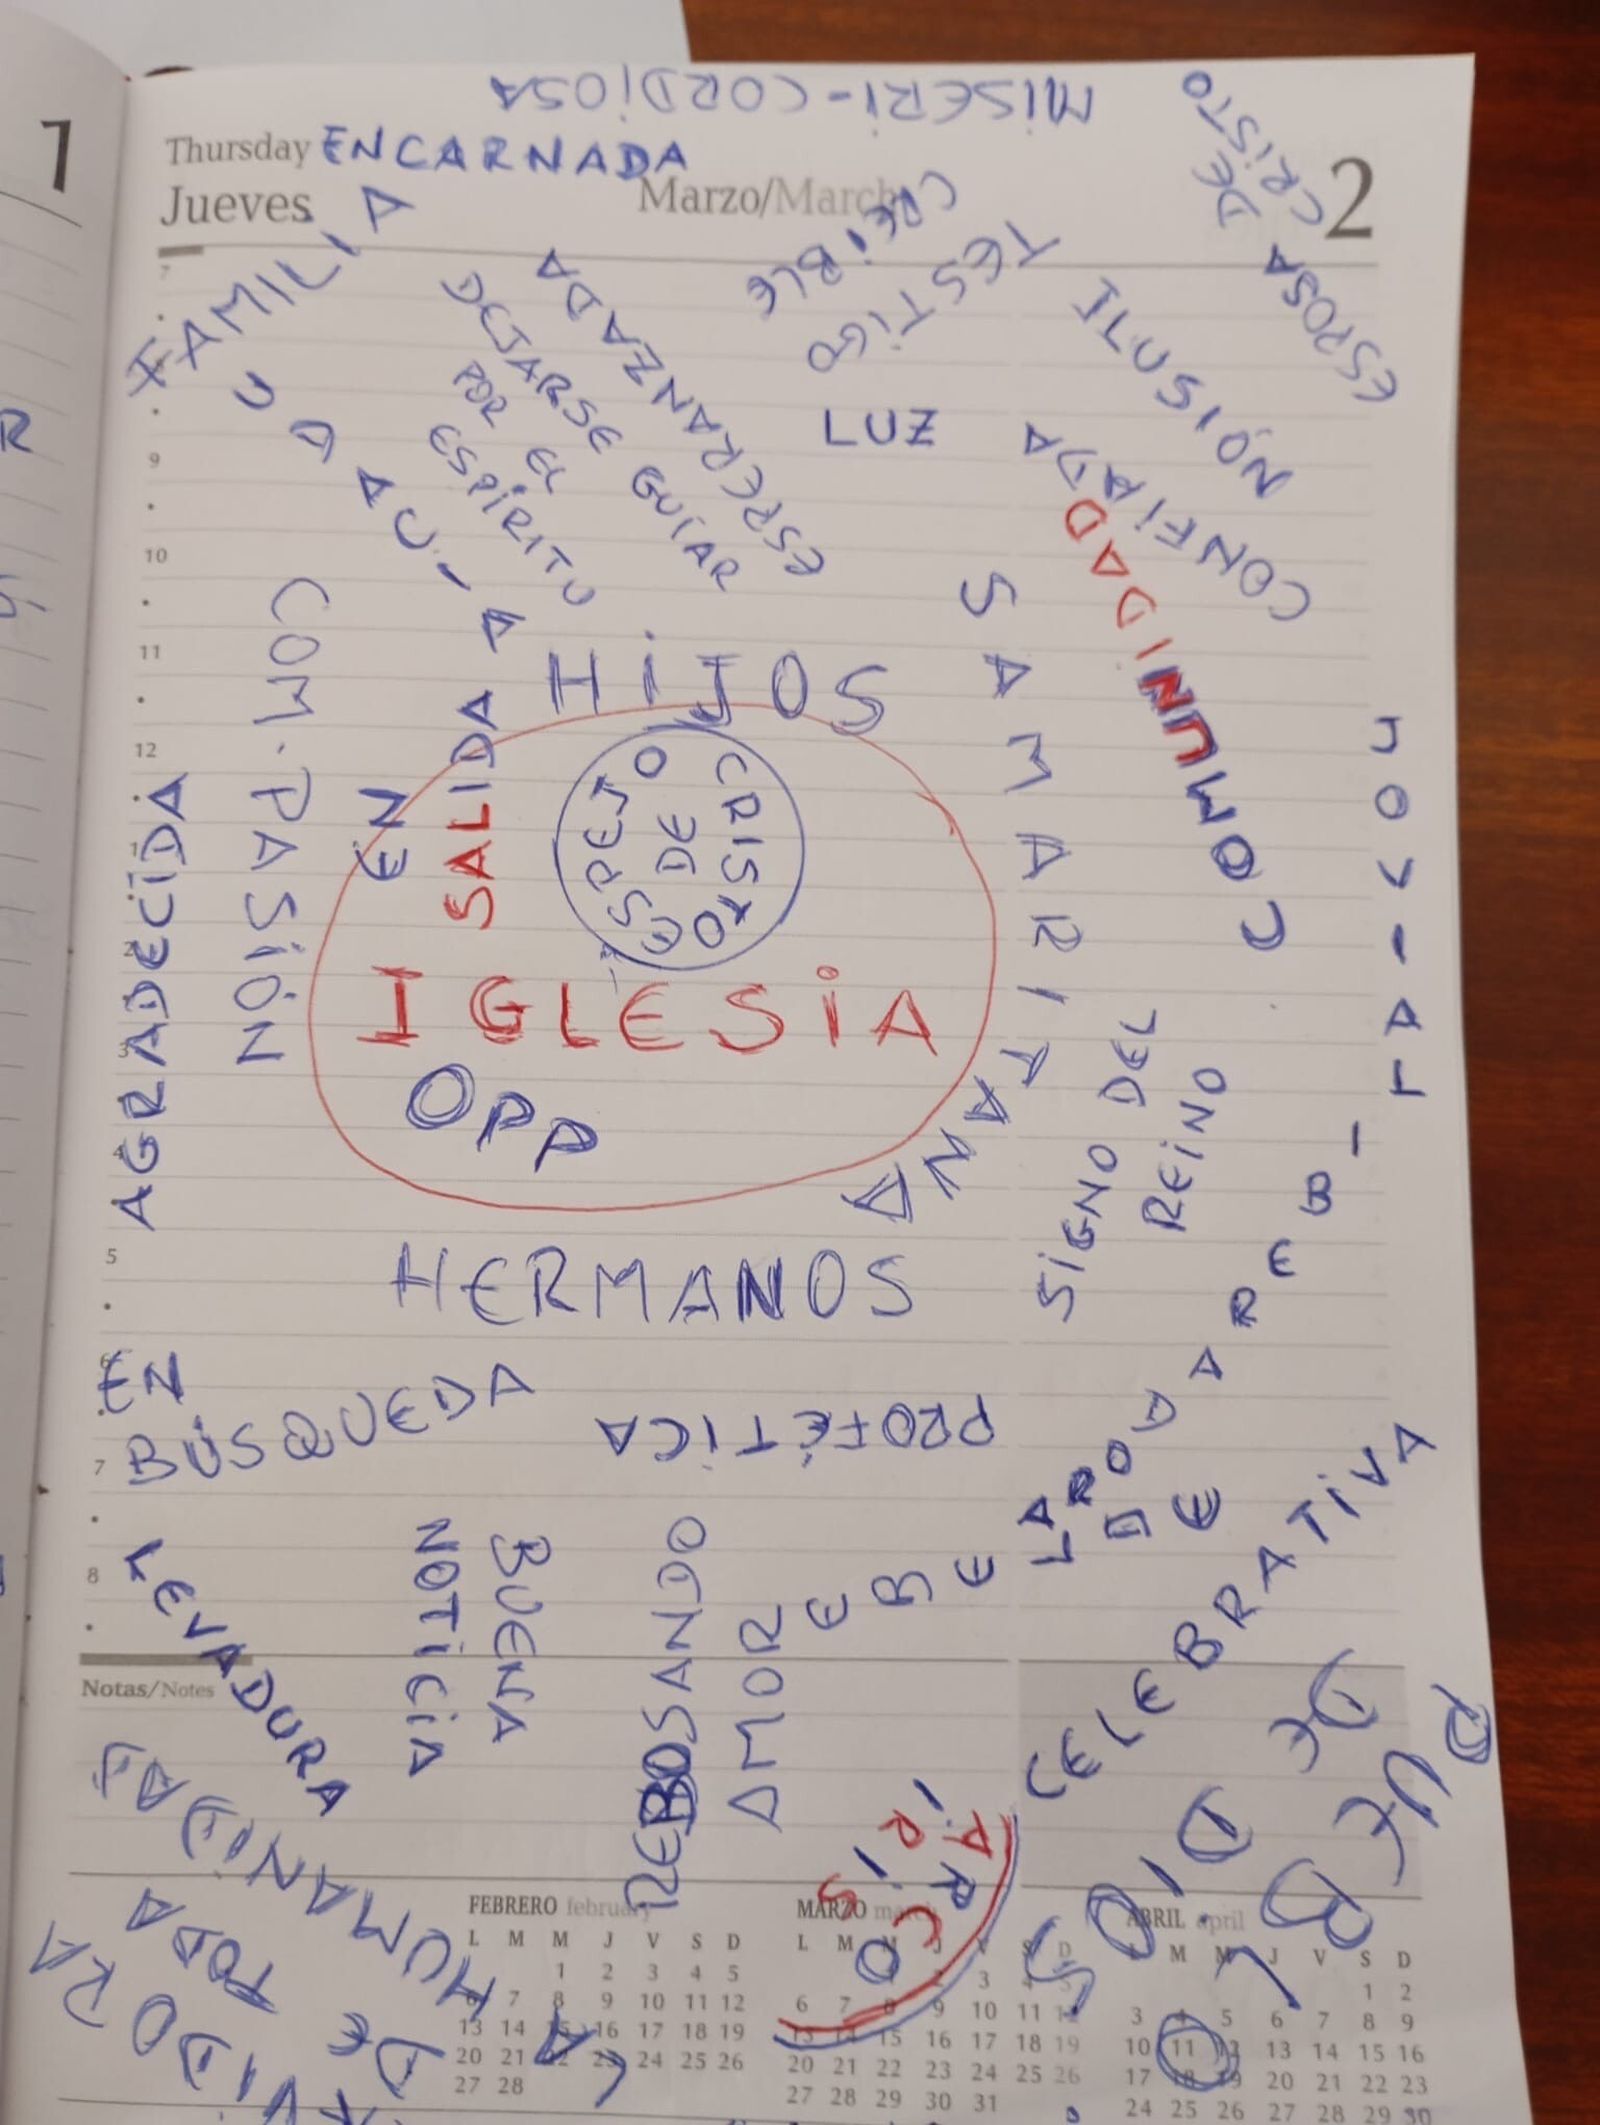 1
MISERI-CORDIOSA
Thursday ENCARNADA
Jueves
Marzo/March
2
ESPOSA
DE
CRISTO
FAMILIA
ESPERANZADA
DEJARSE GUIAR
POR EL
ESPÍRITU
TESTIGO
CREIBLE
LUZ
CONFIADA
COMUNIDAD
R
7
9
10
11
12
1
2
3
4
5
6
7
8
COM-PASIÓN
AGRADECIDA
HIJOS
EN
SALIDA
ESPEJO
DE
CRISTO
IGLESIA
OPP
SAMARITANA
JOVIAL
SIGNO DEL
REINO
HERMANOS
EN
BÚSQUEDA
PROFÉTICA
LEVADURA
BUENA
NOTICIA
REBOSANDO
AMOR
CELEBRATIVA
ARCO
IRIS
Notas/Notes
SERVIDORA
DE TODA
LA HUMANIDAD
FEBRERO february
L M M J V S D
1 2 3 4 5
6 7 8 9 10 11 12
13 14 15 16 17 18 19
20 21 22 23 24 25 26
27 28
MARZO march
L M M J V S D
1 2 3 4 5
6 7 8 9 10 11 12
13 14 15 16 17 18 19
20 21 22 23 24 25 26
27 28 29 30 31
ABRIL april
L M M J V S D
1 2
3 4 5 6 7 8 9
10 11 12 13 14 15 16
17 18 19 20 21 22 23
24 25 26 27 28 29 30